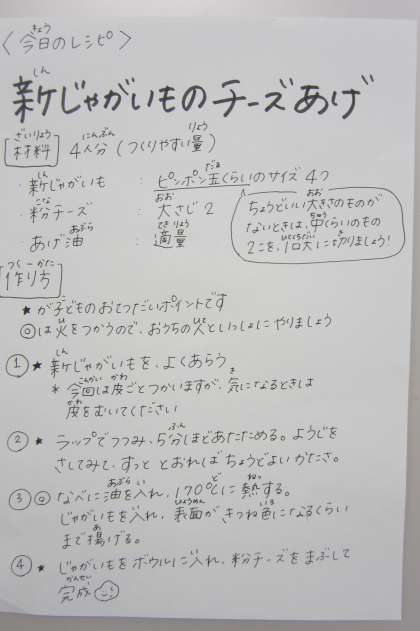 〈今日のレシピ〉
新じゃがいものチーズあげ
材料 4人分(つくりやすい量)
・新じゃがいも : ピンポン玉くらいのサイズ 4つ
・粉チーズ : 大さじ2
・あげ油 : 適量
ちょうどいい大きさのものが
ないときは、中くらいのもの
2こを、1口大に切りましょう!
作り方
★が子どものおてつだいポイントです
◎は火をつかうので、おうちの人といっしょにやりましょう
① ★ 新じゃがいもを、よくあらう
* 今回は皮ごとつかいますが、気になるときは
皮をむいてください
② ★ ラップでつつみ、5分ほどあたためる。ようじを
さしてみて、すっと とおれば ちょうどよい かたさ。
③ ◎ なべに油を入れ、170℃に熱する。
じゃがいもを入れ、表面が きつね色になるくらい
まで揚げる。
④ ★ じゃがいもを ボウルに入れ、粉チーズをまぶして
完成